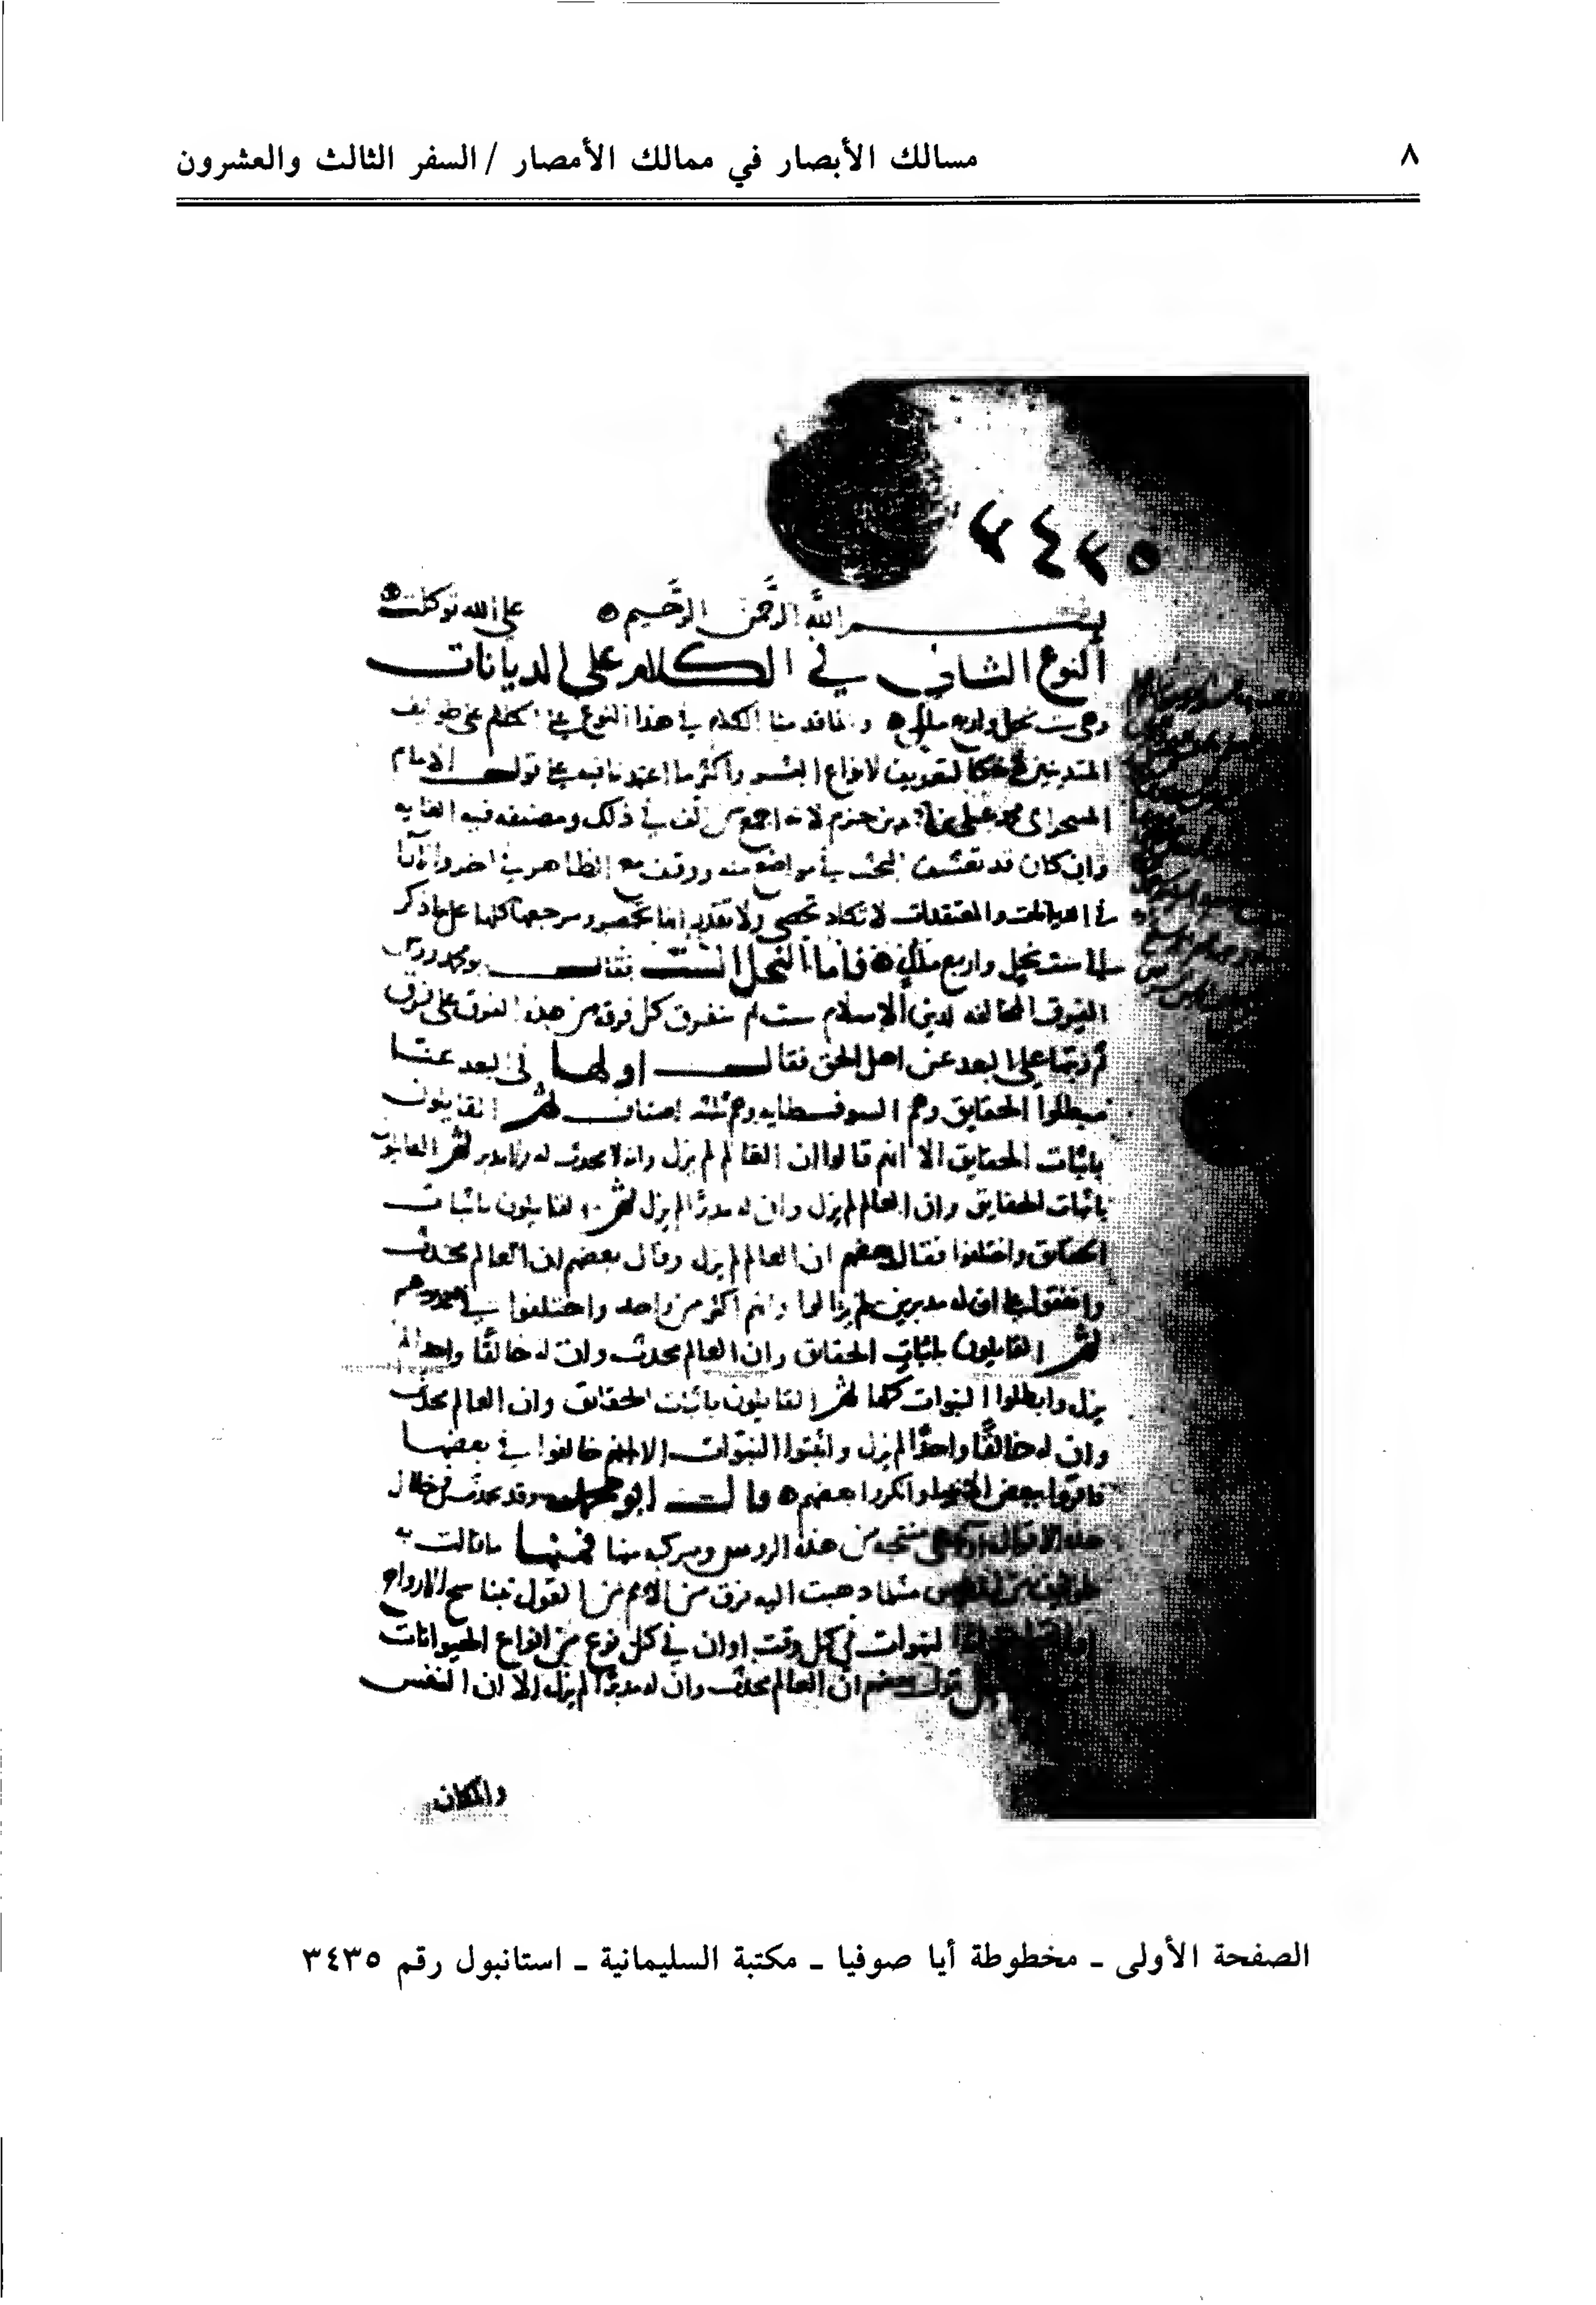 ٨
مسالك الأبصار في ممالك الأمصار / السفر الثالث والعشرون
٣٤٣٥
بسم الله الرحمن الرحيم على الله توكلت
النوع الثاني في الكلام على الديانات
وهي ست نحل واربع ملل وانما قدمنا الكلام في هذا النوع على الكلام على طوايف
المتدينين لانواع البشر واكثر ما اعتمدنا فيه على قول الامام
حزم لانه اجمع من الف في ذلك ومصنفه فيه الغايه
وان كان قد تعسف البحث في مواضع منه ووقف مع الظاهر في اخر
في الديانات والمعتقدات لا تكاد تحصى ومرجعها كلها على ما ذكر
الى ست نحل واربع ملل فاما النحل الست فقال ابو محمد روس
الفرق المخالفه لدين الاسلام ست ثم تتفرق كل فرقة من هذه الفرق على فرق
ثم رتبها على البعد عن اهل الحق فقال اولها في البعد عنا
مبطلوا الحقايق وهم السوفسطايه وهم ثلثه اصناف ثم القايلون
باثبات الحقايق الا انهم قالوا ان العالم لم يزل وانه لا محدث له ولا مدبر ثم القايلون
باثبات الحقايق وان العالم لم يزل وان له مدبرا لم يزل ثم القايلون باثبات
الحقايق واختلفوا فقال بعضهم ان العالم لم يزل وقال بعضهم ان العالم محدث
واتفقوا على ان له مدبرين لم يزالوا وانهم اكثر من واحد واختلفوا في عددهم
ثم القايلون باثبات الحقائق وان العالم محدث وان له خالقا واحدا لم
يزل وابطلوا النبوات كلها ثم القايلون باثبات الحقائق وان العالم محدث
وان له خالقا واحدا لم يزل واثبتوا النبوات الا انهم خالفوا في بعضها
فاقروا ببعض وانكروا بعضهم قال ابو محمد وقد تحدث في خلال
هذه الاقوال اراء هي منتجه من هذه الروس ومركبه منها فمنها ما قالت به
طوايف من مثلما ذهبت اليه فرق من الامم من القول بتناسخ الارواح
النبوات في كل وقت او ان في كل نوع من انواع الحيوانات
قول بعضهم ان العالم محدث وان له مدبرا لم يزل الا ان النفس
والمكان
الصفحة الأولى - مخطوطة أيا صوفيا - مكتبة السليمانية - استانبول رقم ٣٤٣٥